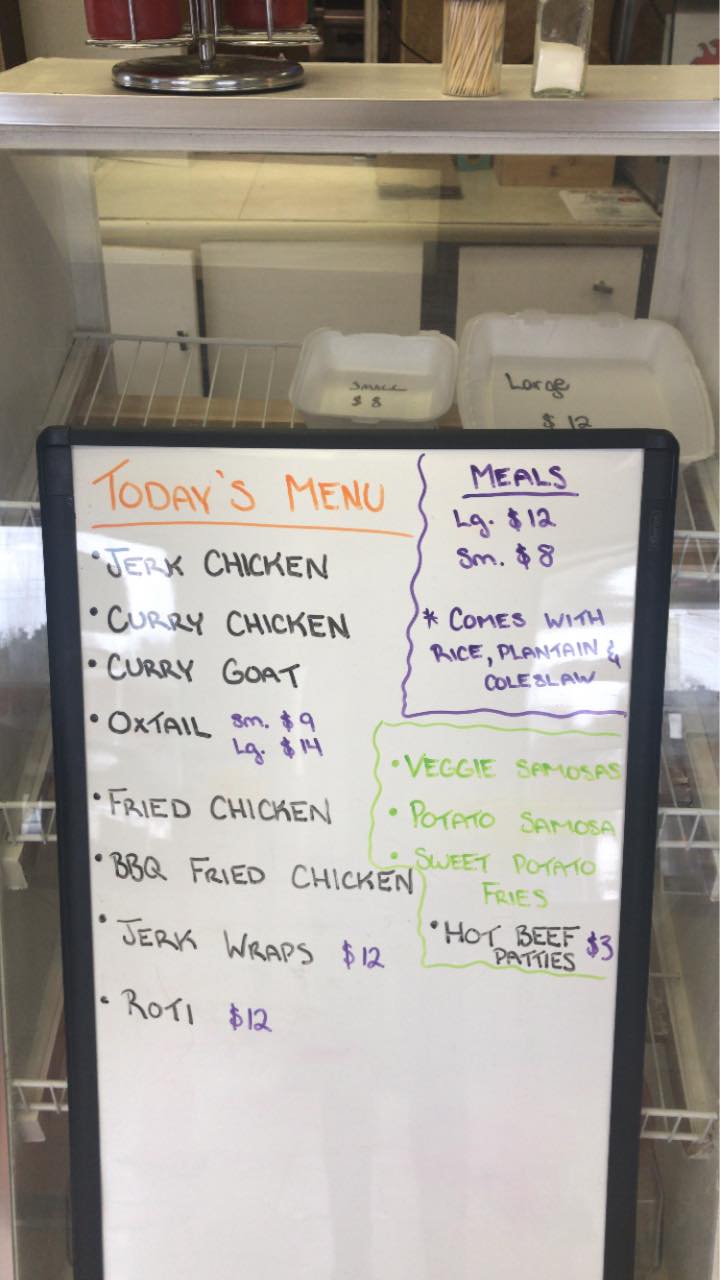 small
$ 8
Large
$ 12
TODAY'S MENU
• JERK CHICKEN
• CURRY CHICKEN
• CURRY GOAT
• OXTAIL sm. $9
Lg. $14
• FRIED CHICKEN
• BBQ FRIED CHICKEN
• JERK WRAPS $12
• ROTI $12
MEALS
Lg. $12
Sm. $8
* COMES WITH
RICE, PLANTAIN &
COLESLAW
• VEGGIE SAMOSAS
• POTATO SAMOSA
• SWEET POTATO
FRIES
• HOT BEEF $3
PATTIES